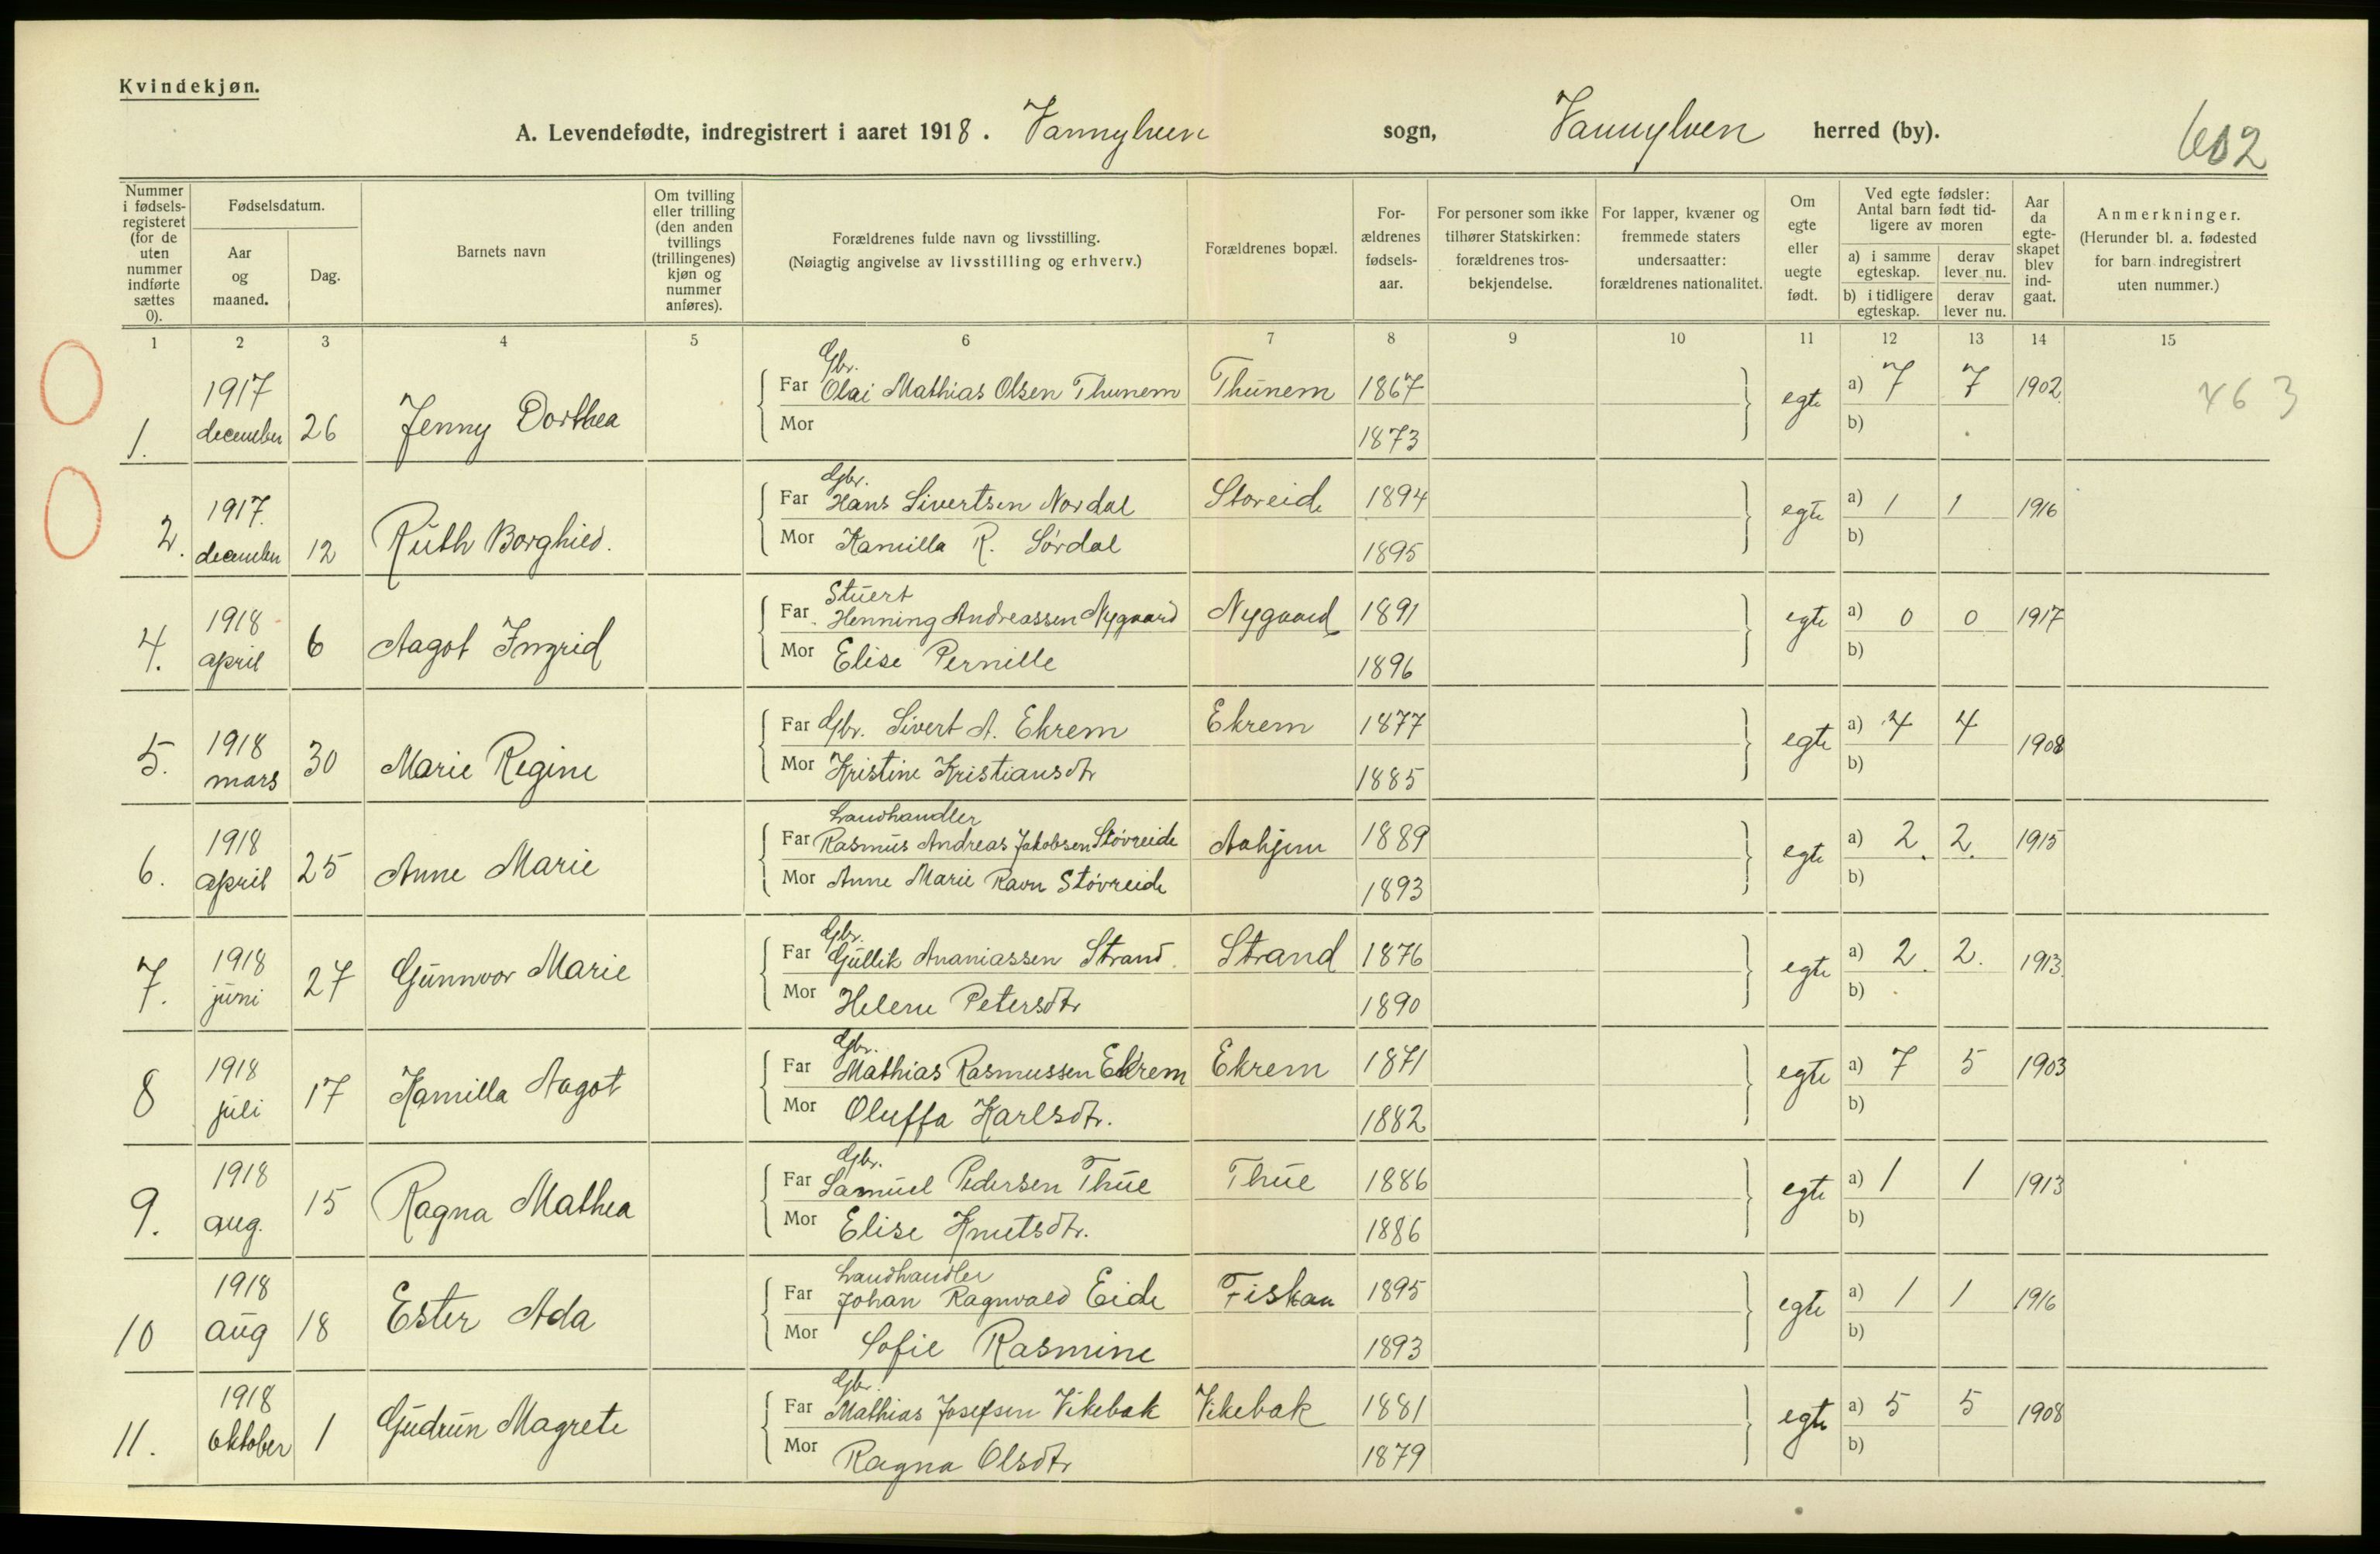 Kvindekjøn.
A. Levendefødte, indregistrert i aaret 1918. Vannylven sogn, Vannylven herred (by).
602
Nummer i fødsels-registeret (for de uten nummer indførte sættes 0).
Fødselsdatum.
Aar og maaned.
Dag.
Barnets navn
Om tvilling eller trilling (den anden tvillings (trillingenes) kjøn og nummer anføres).
Forældrenes fulde navn og livsstilling.
(Nøiagtig angivelse av livsstilling og erhverv.)
Forældrenes bopæl.
For-ældrenes fødsels-aar.
For personer som ikke tilhører Statskirken: forældrenes tros-bekjendelse.
For lapper, kvæner og fremmede staters undersaatter: forældrenes nationalitet.
Om egte eller uegte født.
Ved egte fødsler: Antal barn født tid-ligere av moren
a) i samme egteskap.
derav lever nu.
b) i tidligere egteskap.
derav lever nu.
Aar da egte-skapet blev ind-gaat.
Anmerkninger.
(Herunder bl. a. fødested for barn indregistrert uten nummer.)
1 2 3 4 5 6 7 8 9 10 11 12 13 14 15
Gbr.
1917 Far Olai Mathias Olsen Thunem Thunem 1867 a) 7 7 1902 463
1. december 26 Jenny Dorthea Mor 1873 egte b)
Gbr.
1917. Far Hans Sivertsen Nordal Storeide 1894 a) 1 1 1916
2. december 12 Ruth Borghild. Mor Kamilla R. Sørdal 1895 egte b)
Stuert
1918 Far Henning Andreassen Nygaard Nygaard 1891 a) 0 0 1917
4. april 6 Aagot Ingrid Mor Elise Pernille 1896 egte b)
1918 Far Gbr. Sivert A. Ekrem Ekrem 1877 a) 4 4 1908
5. mars 30 Marie Regine Mor Kristine Kristiansdtr 1885 egte b)
Landhandler
1918 Far Rasmus Andreas Jakobsen Støvreide Aahjem 1889 a) 2. 2. 1915
6. april 25 Anne Marie Mor Anne Marie Ravn Støvreide 1893 egte b)
Gbr.
1918 Far Gullik Ananiassen Strand. Strand 1876 a) 2. 2. 1913
7. juni 27 Gunnvor Marie Mor Helene Petersdtr 1890 egte b)
Gbr.
1918 Far Mathias Rasmussen Ekrem Ekrem 1871 a) 7 5 1903
8 juli 17 Kamilla Aagot Mor Oluffa Karlsdtr. 1882 egte b)
Gbr.
1918 Far Samuel Pedersen Thue Thue 1886 a) 1 1 1913
9. aug. 15 Ragna Mathea Mor Elise Knutsdtr. 1886 egte b)
Landhandler
1918 Far Johan Ragnvald Eide Fiskaa 1895 a) 1 1 1916
10 aug 18 Ester Ada Mor Sofie Rasmine 1893 egte b)
Gbr.
1918 Far Mathias Josefsen Vikebak Vikebak 1881 a) 5 5 1908
11. oktober 1 Gudrun Magrete Mor Ragna Olsdtr 1879 egte b)